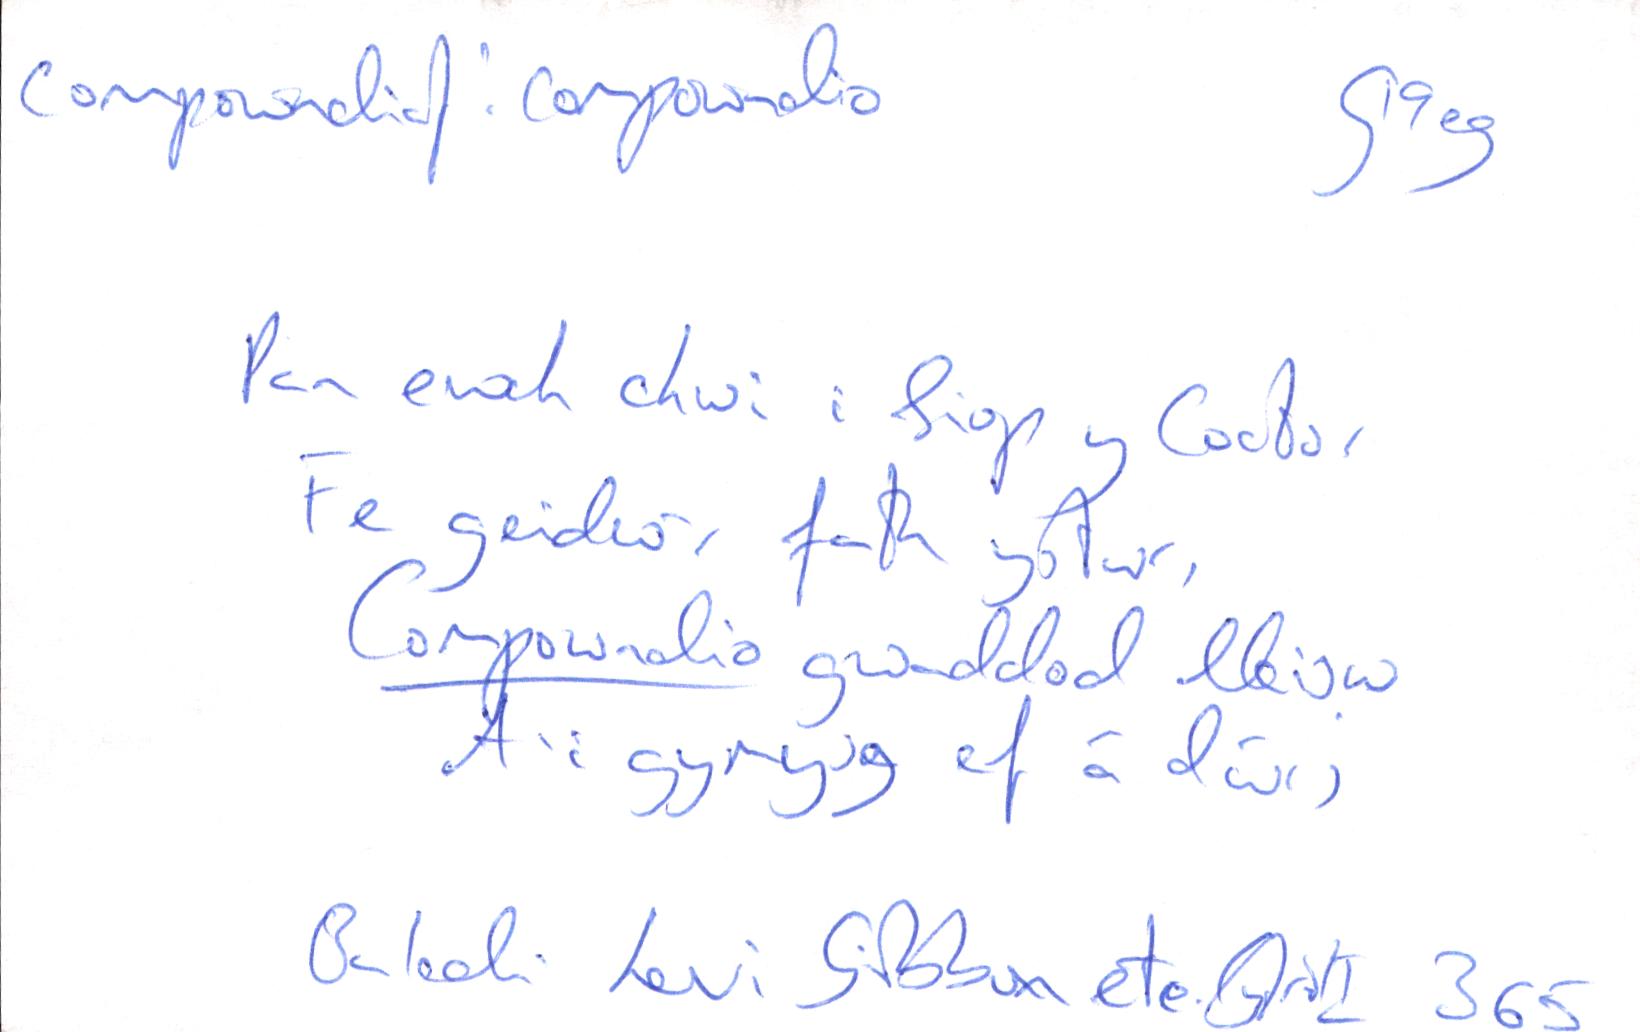 compowndiaf: compowndio G19eg
Pan eloch chwi i Siop y Coctor
Fe geidw'r fath ystŵr,
Compowndio gwaddod lleisw
A'i gymysg ef â dŵr,
Baledi Levi Gibbon etc. 365